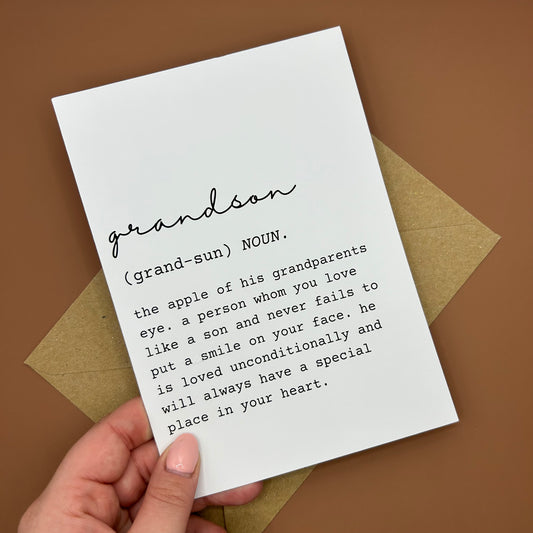 grandson
(grand-sun) NOUN.
the apple of his grandparents
eye. a person whom you love
like a son and never fails to
put a smile on your face. he
is loved unconditionally and
will always have a special
place in your heart.